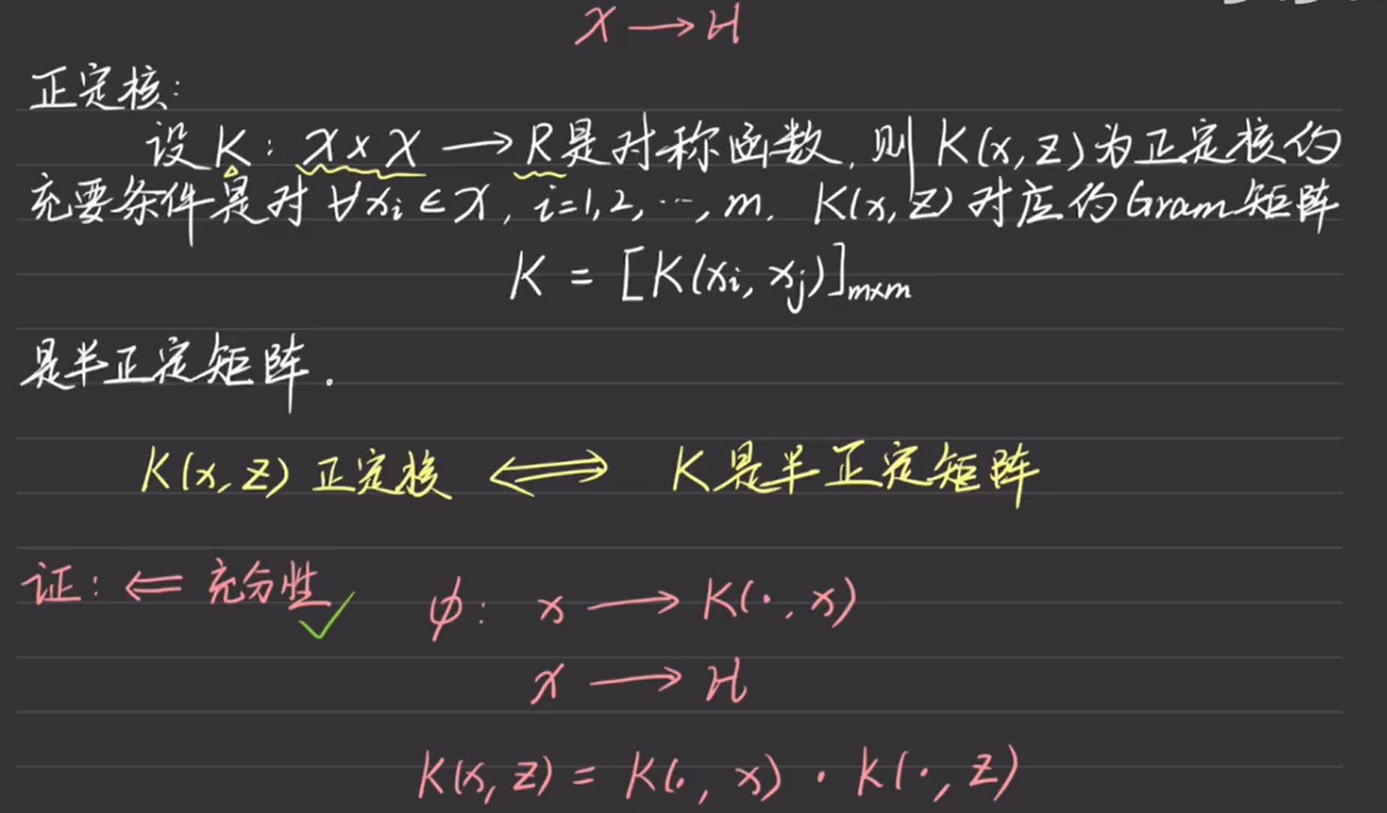 𝒳 → ℋ
正定核:
设 K: 𝒳 × 𝒳 → R 是对称函数, 则 K(x, z) 为正定核的
充要条件是对 ∀xi ∈ 𝒳, i=1,2,⋯,m. K(x, z) 对应的 Gram 矩阵
K = [K(xi, xj)]m×m
是半正定矩阵.
K(x, z) 正定核 ⟺ K是半正定矩阵
证: ⟸ 充分性 ✓ φ: x → K(·, x)
𝒳 → ℋ
K(x, z) = K(·, x) · K(·, z)